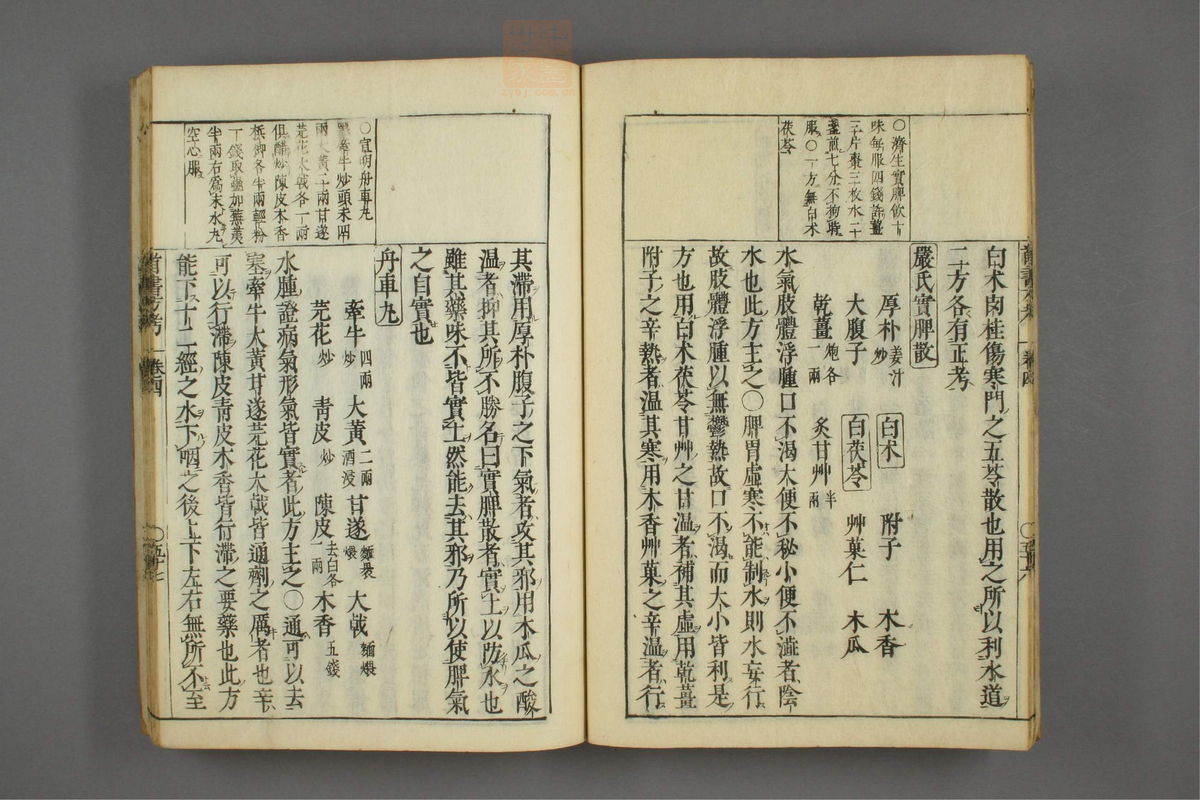 ○濟生實脾飲十
味每服四錢薑
三十片棗三枚水二十
盞煎七分不拘時
服○一方無白朮
茯苓
白朮肉桂傷寒門之五苓散也用之所以利水道
二方各有正考
嚴氏實脾散
厚朴姜汁炒 白朮 附子 木香
大腹子 白茯苓 艸菓仁 木瓜
乾薑炮各一兩 炙甘艸半兩
水氣肢體浮腫口不渴大便不秘小便不澁者陰
水也此方主之○脾胃虛寒不能制水則水妄行
故肢體浮腫以無鬱熱故口不渴而大小皆利是
方也用白朮茯苓甘艸之甘溫者補其虛用乾薑
附子之辛熱者溫其寒用木香艸菓之辛溫者行
○宣明舟車丸
黑牽牛炒頭末四
兩大黃二兩甘遂
芫花大戟各一兩
俱醋炒陳皮木香
檳榔各半兩輕粉
一錢取蟲加蕪荑
半兩右爲末水丸
空心服
其滯用厚朴腹子之下氣者攻其邪用木瓜之酸
溫者抑其所不勝名曰實脾散者實土以防水也
雖其藥味不皆實土然能去其邪乃所以使脾氣
之自實也
舟車丸
牽牛四兩炒 大黃二兩酒浸 甘遂麵裹煨 大戟麵煨
芫花炒 靑皮炒 陳皮去白各一兩 木香五錢
水腫證病氣形氣皆實者此方主之○通可以去
塞牽牛大黃甘遂芫花大戟皆通劑之厲者也辛
可以行滯陳皮靑皮木香皆行滯之要藥也此方
能下十二經之水下咽之後上下左右無所不至
卷四
卷四